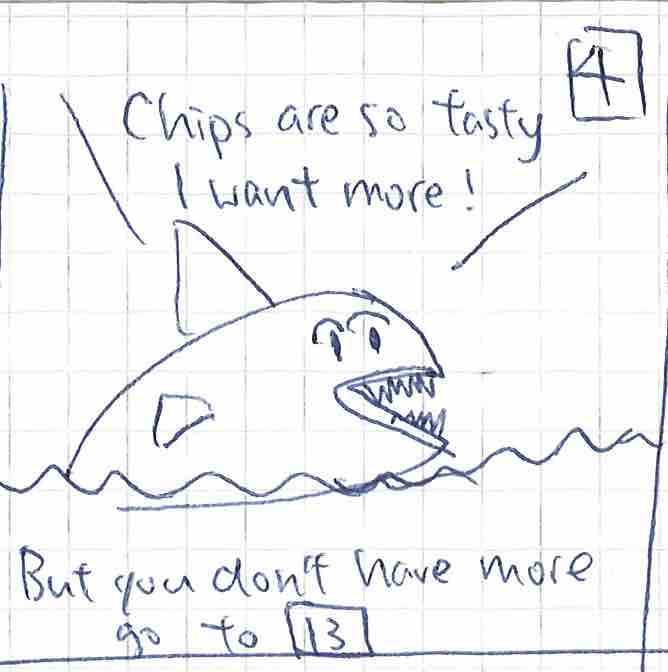 4
Chips are so tasty
I want more!
But you don't have more
go to 13